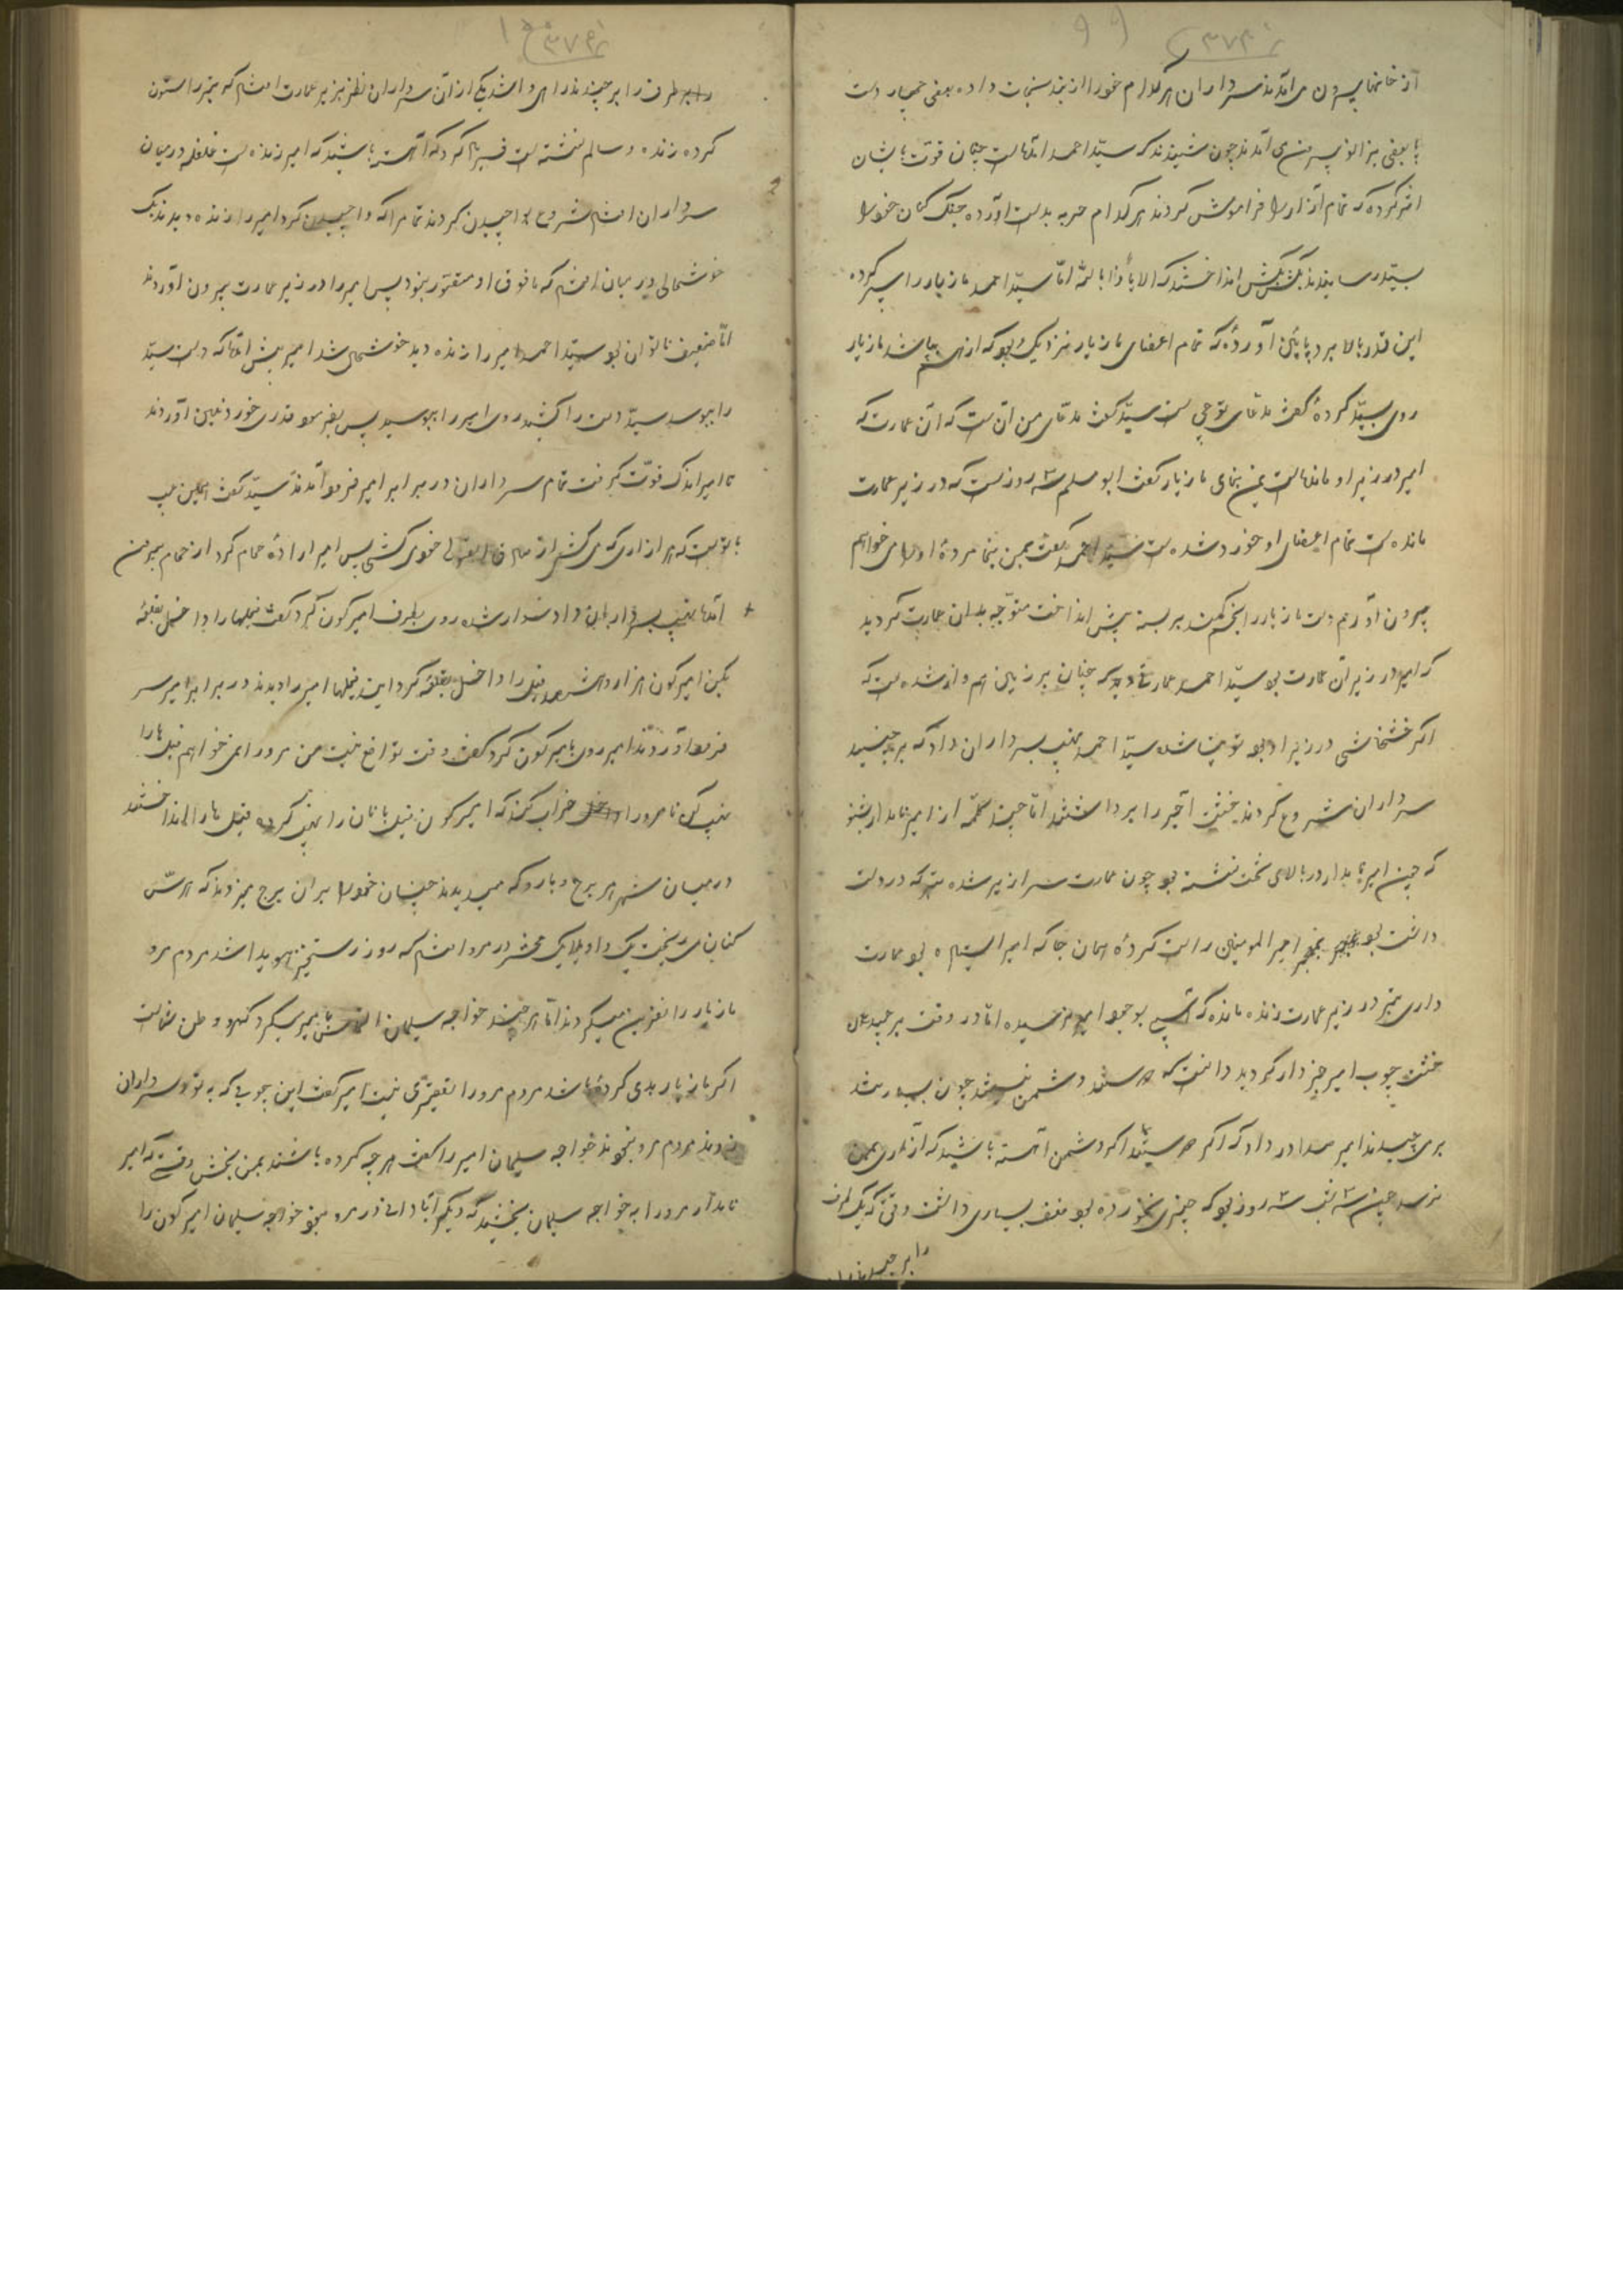 از خانها بیرون می آمدند سرداران هر کدام خود را از بند نجات داده بعضی چهار دست
پا بعضی بزانو بیرون می آمدند چون شنیدند که سید احمد آمده است چنان قوت بایشان
اثر کرده که تمام آزار را فراموش کردند هر کدام حربه بدست آورده جنگ کنان خود را
بسید رسانیدند بکش بکش انداختند که الا یا ذا بالله اما سید احمد مازیار را سپر کرده
این قدر بالا برد پایین آورده که تمام اعضای مازیار نزدیک بود که از هم بپاشد مازیار
روی بسید کرده گفت مدعای تو چی است سید گفت مدعای من آن است که آن عمارت که
امیر در زیر او مانده است بمن بنمای مازیار گفت ابومسلم سه روز است که در زیر عمارت
مانده است تمام اعضای او خورد شده است سید احمد گفت بمن بنما مردهٔ او را می خواهم
بیرون آورم دست مازیار را بخم کمند بر بسته پیش انداخت متوجه بدان عمارت گردید
که امیر در زیر آن عمارت بود سید احمد عمارت دید که چنان بر زمین هم وار شده است که
اگر خشخاشی در زیر او بود توتیا شده سید احمد نهیب بسرداران داد که برچینید
سرداران شروع کردند خشت آجر را برداشتند اما چند کلمه از امیر نامدار بشنو
که چون امیر نامدار در بالای تخت نشسته بود چون عمارت سرازیر شده تبر که در دست
داشت بود بنجر امیر المومنین راست کرده همان جا که امیر ایستاده بود عمارت
داری تبر در زیر عمارت زنده مانده که آسیبی بوجود امیر نرسیده اما در وقت برچیدن
خشت چوب امیر خبردار گردید دانست که دوستند دشمن نیستند چون
برمی چیدند امیر صدا در داد که اگر دوستید اگر دشمن آهسته باشید که آزاری بمن
نرسد چون سه شب سه روز بود که چیزی نخورده بود ضعف بسیاری داشت وقتی که یک طرف
را برچیدند
طرف را برچیدند راهی وا شد یکی از آن سرداران نظر بزیر عمارت انداخت که تبر را ستون
کرده زنده و سالم نشسته است فریاد کرد که آهسته باشید که امیر زنده است غلغله در میان
سرداران افتاد شروع بواچیدن کردند تمام را که واچیدن کرد امیر را زنده دیدند یک
خوشحالی در میان افتاد که ما فوق او متصور نبود پس امیر را در زیر عمارت بیرون آوردند
اما ضعیف ناتوان بود سید احمد امیر را زنده دید خوشحال شد امیر پیش آمد که دست سید
را ببوسد سید دست را کشید روی امیر را ببوسید پس بفرمود قدری خوردنی آوردند
تا امیر اندک قوت گرفت تمام سرداران در برابر امیر فرود آمدند سید گفت
با تو است که هر آزاری که می کشی از خود می کشی پس امیر ارادهٔ حمام کرد از حمام بیرون
آمد نهیب بسرداران داد سوار شده روی بطرف امیر کون کرد گفت فیلها را داخل قلعه
بکن امیر کون هزار فیل را داخل قلعه کرد این فیلها امیر را دیدند در برابر امیر سر
فرود آوردند امیر روی بامیر کون کرد گفت وقت تواضع نیست من مرو را نمی خواهم فیل ها را
نهیب کن تا مرو را خراب کنند که امیر کون فیل بانان را نهیب کرده فیل ها را انداختند
در میان شهر هر برج و بارو که میدیدند چنان خود را بر آن برج میزدند که
کنان می ریخت یک واویلا یک محشر در مرو افتاد که روز رستخیز هویدا شد مردم مرو
مازیار را نفرین میکردند اما هر چند خواجه سلیمان التماس بامیر میکرد که مرو وطن شما است
اگر مازیار بدی کرده باشد مردم مرو را تقصیری نیست امیر گفت این چوب که به تو و سرداران
زدند مردم مرو نبودند خواجه سلیمان امیر را گفت هر چه کرده باشند بمن بخش وقتی که امیر
نامدار مرو را به خواجه سلیمان بخشید که دیگر آبادانی در مرو نبود خواجه سلیمان امیر کون را